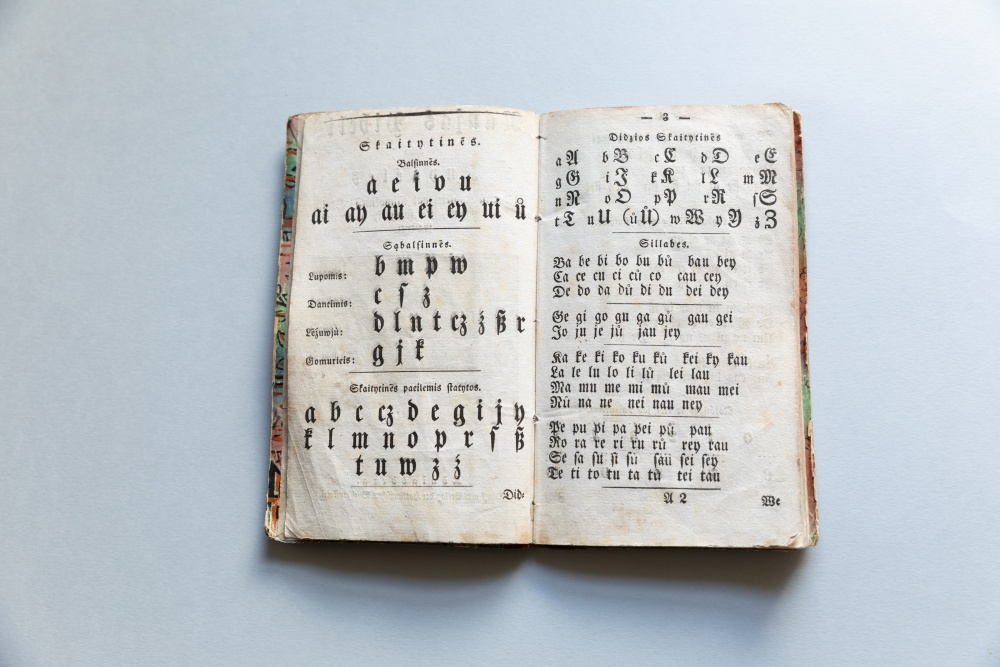 Skaitytinēs.
Balſinnēs.
a e i o u
ai ay au ei ey ui ů
Sąbalſinnēs.
Lupomis: b m p w
Dantimis: c ſ ż
Lėžuwju: d l n t cz ź ß r
Gomurieis: g j k
Skaitytinēs pacilemis ſtatytos.
a b c cz d e g i j y
k l m n o p r ſ ß
t u w ż ź
Did⸗
— 3 —
Didzios Skaitytinēs
a A b B c C d D e E
g G i J k K l L m M
n N o O p P r R ſ S
t T u U (ů Ů) w W y Y ż Z
Sillabes.
Ba be bi bo bu bů bau bey
Ca ce cu ci ců co cau cey
De do da dů di du dei dey
Ge gi go gu ga gů gau gei
Jo ju je jů jau jey
Ka ke ki ko ku ků kei ky kau
La le lu lo li lů lei lau
Ma mu me mi mů mau mei
Nů na ne nei nau ney
Pe pu pi pa pei pů pau
Ro ra re ri ru rů rey rau
Se ſa ſu ſi ſů ſau ſei ſey
Te ti to tu ta tů tei tau
A 2
We